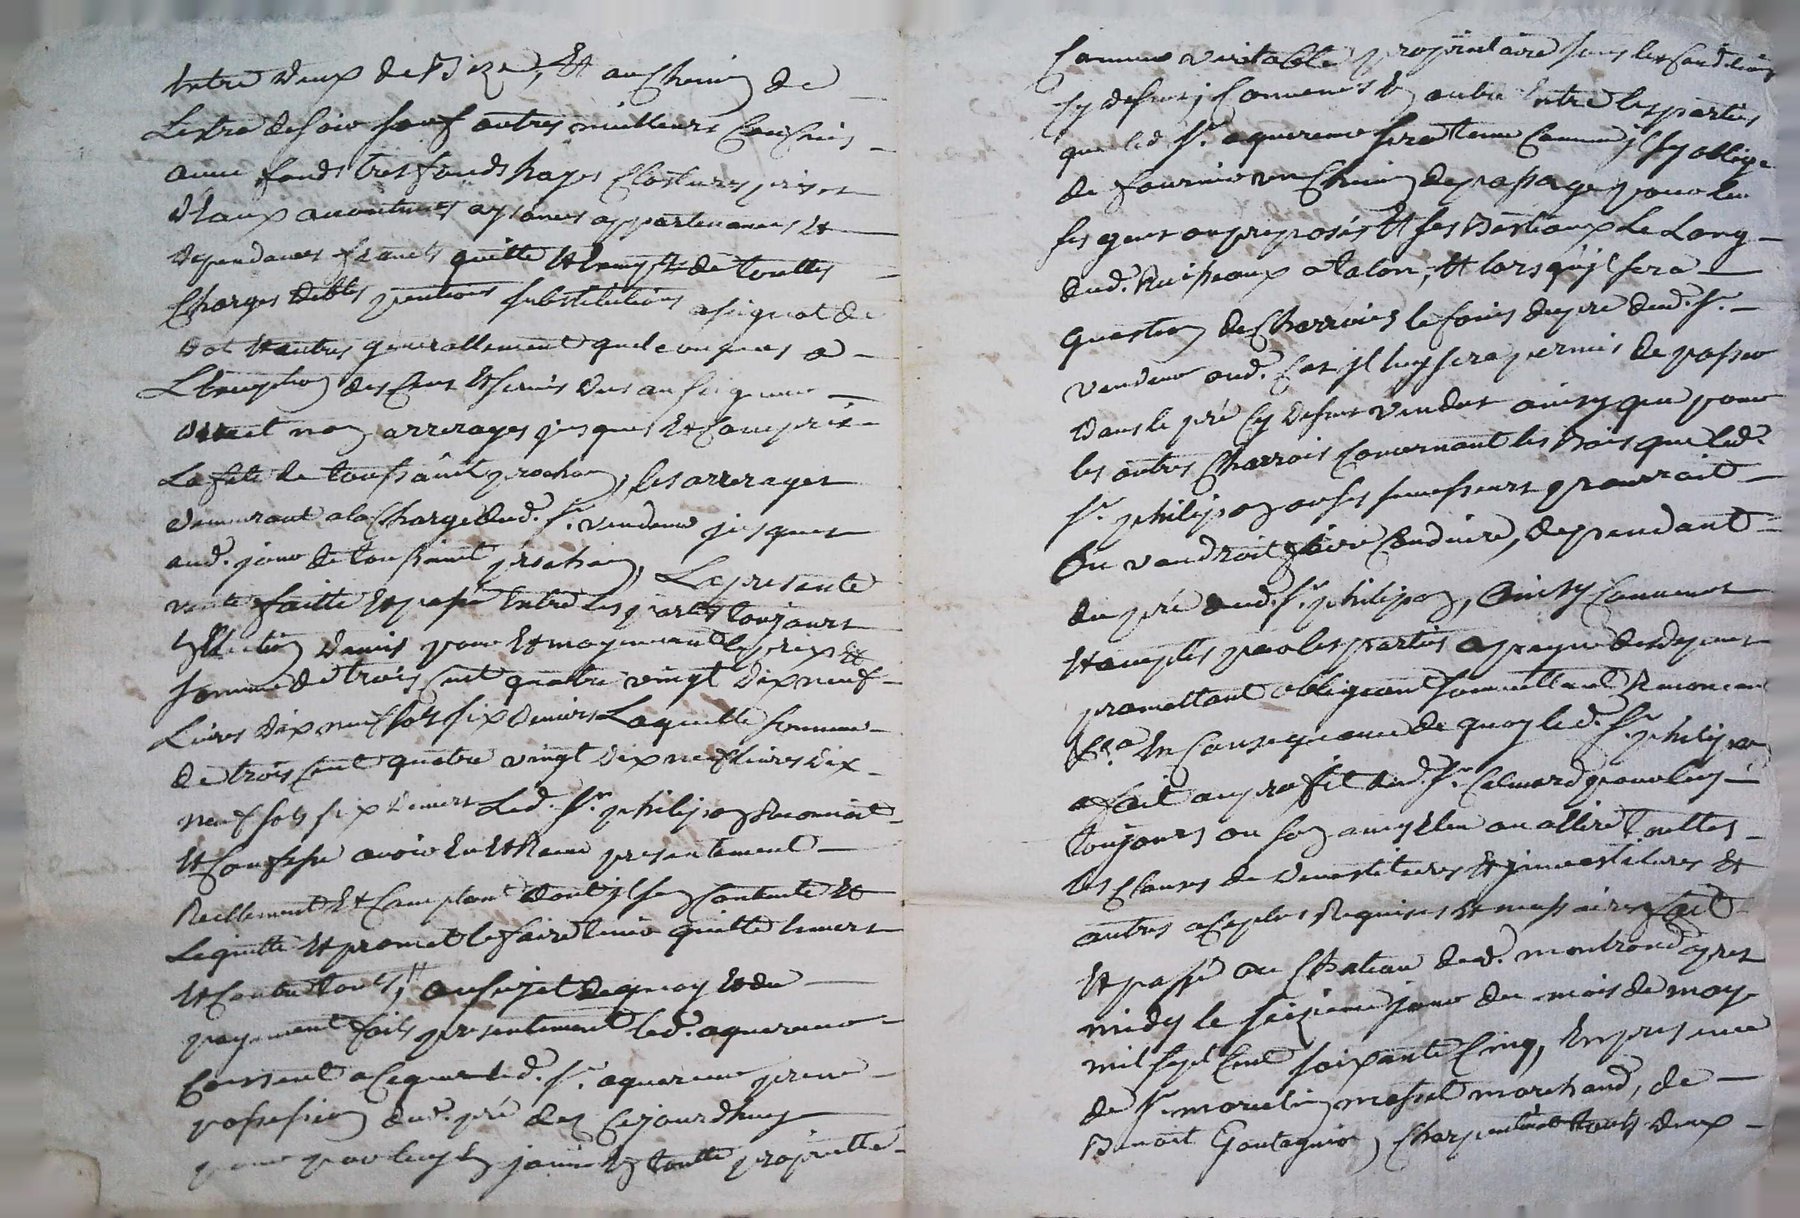 entre deux de Bize, et au chemin de
Lestra de soir sauf autres meilleurs confins
avec fonds tres fonds hayes clostures prises
d'eaux accoutumés aysances appartenances et
dependances francs quitte et exempt de touttes
charges debtes pentions substitutions assignat de
dot et autres generallement quelconques a
L'exception des cens et servis dus au seigneur
direct non arrerages jusques et compris
La fete de toussaint prochain, les arrerages
demeurant a la charge dud. sr. vendeur jusques
aud. jour de toussaint prochain, La presente
vente faitte et passé entre les parties toujours
pour et moyennant le prix et
somme de trois cent quatre vingt dix neuf
Livres dix neuf sols six deniers Laquelle somme
de trois cent quatre vingt dix neuf livres dix
neuf sols six deniers Led. sr. philipon reconnoit
et confesse avoir eu et receu presentement
reellement et comptant dont il sen contente et
Lequitte et promet le faire tenir quitte envers
et contre tous, au sujet de quoy et du
payement fait presentement led. aquereur
consent a ce que led. sr. aquereur prene
possession dud. pré des cejourdhuy
pour par luy en jouir en toutte proprietté
comme veritable proprietaire sous les conditions
cy dessus, convenus en outre entre les parties
que led sr. aquereur sera tenu comme il sy oblige
de fournir un chemin de passage pour les
ses gens ou preposés et ses bestiaux Le Long
dud. ruisseaux a talon, et lors qu'il sera
question de charroier le foins du pré dud. sr.
vendeur aud. cas il luy sera permis de passer
dans le pré cy dessus vendus ainsy que pour
les autres charrois concernant les bois que led.
sr. philipon ou ses successeurs pourroit
ou voudroit faire conduire, dependant
du pré dud. sr. philipon, Ainsy convenus
et acceptés par les parties a peyne de depens
promettant obligeant soumettant renonceant
&a. En conseqeance de quoy led. sr. philipon
a fait au profit dud. sr. Calmard pour luy
toujours ou son amy elu ou a elire touttes
les clauses de devestitures et jnvestitures et
autres a ce plus requises et necessaires fait
et passé au chateau dud. montrond apres
midy le seizieme jour du mois de may
mil sept cent soixante cinq, En presence
de sr. marcelin massel marchand, de
Benoit Goutagnier, charpentier tous deux